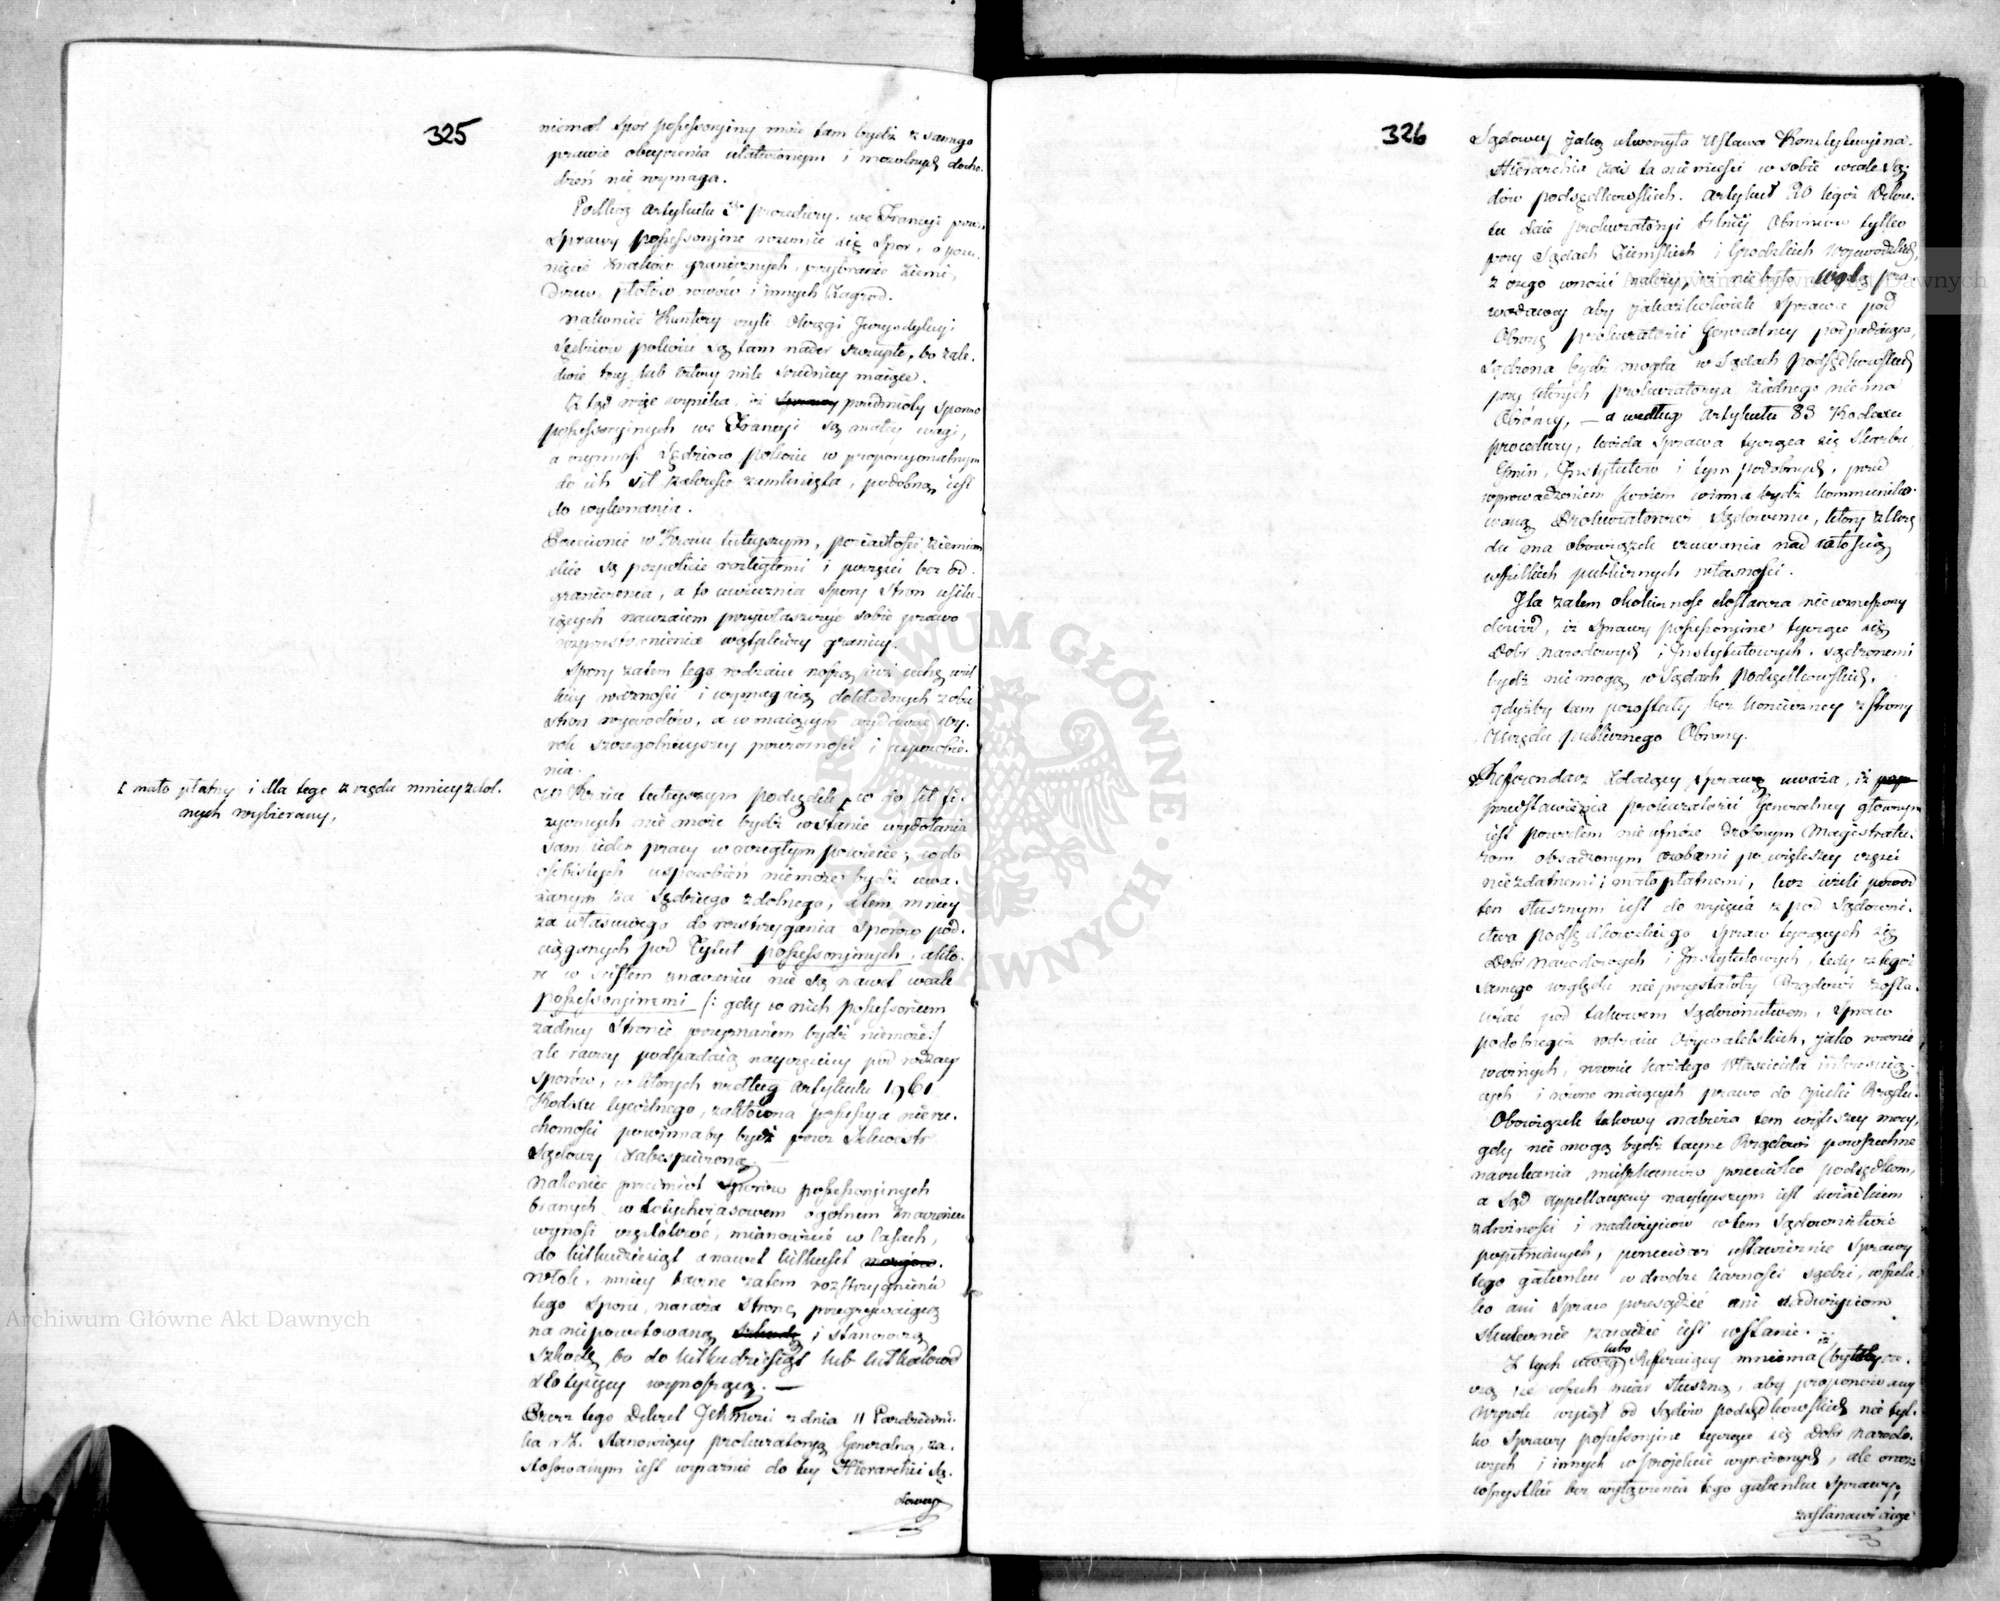 325
niemal spor possessoryiny może tam bydź z samego
prawie obeyrzenia ułatwionym i mozolnych docho-
dzeń nie wymaga.
Podług artykułu 3o procedury, we Francyi przez
sprawy possessoryine rozumie się spor, o posu-
nięcie znaków granicznych, przybranie ziemi,
drzew, płotów rowów i innych zagrod.
nakoniec Kantony czyli okręgi Jurysdykcyi
Sędziow pokoiu są tam nader szczupłe, bo zale-
dwie trzy lub cztery mile srednicy maiące.
Ztąd więc wynika, iż sprawy przedmioty sporow
possessoryinych we Francyi są małey wagi,
a czynność Sędziow Pokoiu w proporcyonalnym
do ich sił zakresie zamknięta, podobną iest
do wykonania.
Przeciwnie w Kraiu tuteyszym, posiadłości ziemian
skie są pospolicie rozległemi i po części bez od-
graniczenia, a to uwiecznia spory stron usiłu-
iących nawzaiem przywłaszczyć sobie prawo
rozprzestrzenienia wątpliwey granicy.
Spory zatem tego rodzaiu noszą iuż cechę wiel
kiey ważności i wymagaią dokładnych z obu
stron wywodów, a w maiącym wydawać wy-
rok szczególnieyszey przezorności i usposobie-
nia.
i mało płatny i dla tego z rzędu mniey zdol-
nych wybierany,
W Kraiu tuteyszym podsędek, co do sił fi-
zycznych nie może bydź w stanie wydołania
sam ieden pracy w rozległym powiecie; co do
osobistych usposobień niemoże bydź uwa-
żanym za Sędziego zdolnego, a tem mniey
za właściwego do rozstrzygania sporów pod-
ciąganych pod tytuł possessoryinych, a któ-
re w ścisłem znaczeniu nie są nawet wcale
possessoryinemi /: gdy w nich possessorium
żadney stronie przyznanem bydź niemoże :/
ale raczey podpadaią nayczęściey pod rodzay
sporów, w których według artykułu 1961
Kodexu cywilnego, zakłócona possessya nieru-
chomości powinnaby bydź przez Sekwestr
Sądowy zabespieczoną —
Nakoniec przedmiot sporów possessoryinych
branych w dotychczasowem ogólnem znaczeniu
wynosi wartość, mianowicie w lasach,
do kilkudziesiąt a nawet kilkuset
włók, mniey baczne zatem rozstrzygnienie
tego sporu, naraża stronę przegrywaiącą
na niepowetowaną szkodę i stanowczą
szkodę bo do kilkudziesiąt lub kilkakroć
złotych wynoszącą. —
Przez tego Dekret Jchmości z dnia 11 Październi-
ka r. z. stanowiący prokuratoryą Generalną, za-
stosowanym iest wyraźnie do tey Hierarchii Są-
dowey
326
Sądowey jaką utworzyła Ustawa Konstytucyina.
Hierarchia zaś ta niemieści w sobie wcale Są-
dów podsędkowskich. Artykuł 20 tegoż Dekre-
tu daie prokuratoryi Ob
przy Sądach Ziemskich i Grodzkich Woiewódzkich,
z czego wnosić należy, iż nie było myślą pra
wodawcy aby jakażkolwiek sprawa pod
Obronę prokuratorii Generalney podpadaiąca,
sądzona bydź mogła w Sądach podsędkowskich
przy których prokuratorya żadnego nie ma
Obrońcy, — a według artykułu 83 Kodexu
procedury, każda sprawa tycząca się skarbu
Gmin, Instytutów i tym podobnych, przed
wprowadzeniem swoiem winna bydź kommuniko-
waną Prokuratorowi Sądowemu, który z Urzę
du ma obowiązek czuwania nad całością
wszelkich publicznych własności.
Ta zatem okoliczność dostarcza niewzruszony
dowód, iż sprawy possessoryine tyczące się
Dobr narodowych i Instytutowych, sądzonemi
bydź niemogą w Sądach podsędkowskich,
gdyżby tam pozostały bez koniecznej z strony
Urzędu publicznego Obrony.
Referendarz zdaiący sprawę uważa, iż
przedstawienia prokuratorii Generalney głownym
iest powodem nieufność drobnym Magistratu-
rom obsadzonym osobami po większey części
niezdatnemi i mało płatnemi, lecz ieżeli powod
ten słusznym iest do wyięcia z pod Sądowni-
ctwa podsędkowskiego spraw tyczących się
Dobr Narodowych i Instytutowych, tedy z tegoż
samego względu nie przystałoby Rządowi zosta-
wiać pod takowem Sądownictwem, spraw
podobnegoż rodzaiu obywatelskich, jako rownie
ważnych, rownie każdego właściciela interesuią-
cych i równe maiących prawo do opieki Rządu.
Obowiązek takowy nabiera tem większey mocy,
gdy nie mogą bydź tayne Rządowi powszechne
narzekania mieszkańców przeciwko podsędkom,
a Sąd appellacyiny naylepszym iest świadkiem
zdrożności i nadużyciow w tem Sądownictwie
popełnianych, ponieważ ustawicznie sprawy
tego gatunku w drodze karności sądzi, wszela-
ko ani spraw przesądzić ani nadużyciom
skutecznie zaradzić iest w stanie.
Z tych uwag Referuiący mniema
rzą ze wszech miar słuszną, aby proponowany
Wyrok wyiął od Sądów podsędkowskich nie tyl-
ko sprawy possessoryine tyczące się Dobr Narodo-
wych i innych w proiekcie wyrażonych, ale oraz
wszystkie bez wyłączenia tego gatunku sprawy,
zastanawiaiąc
Archiwum Główne Akt Dawnych